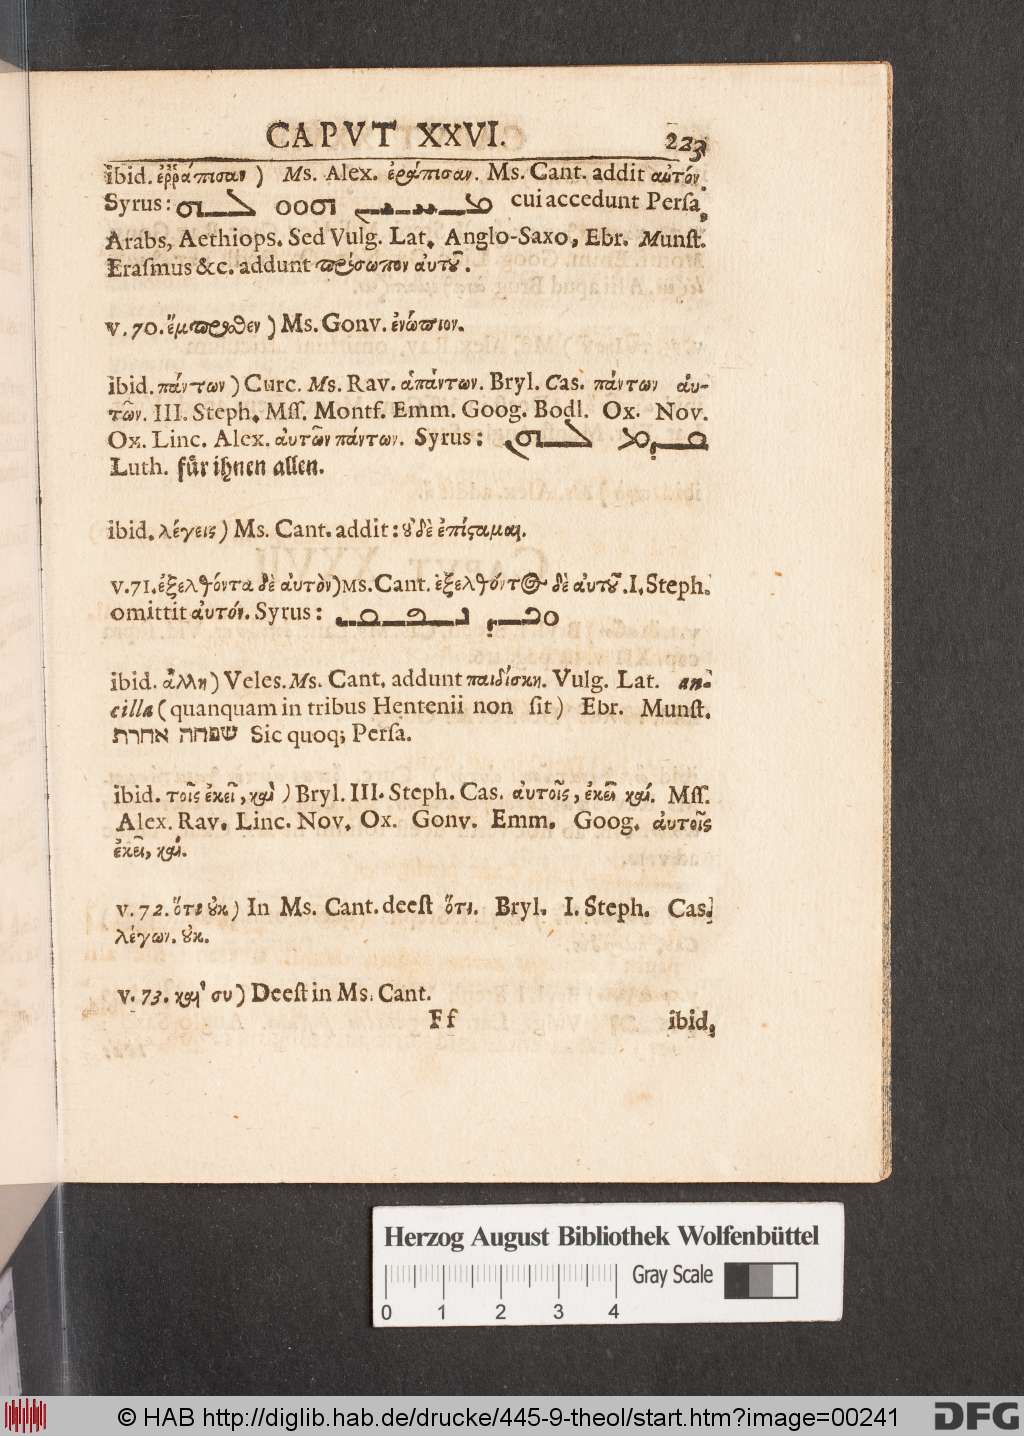 CAPVT XXVI. 223
ibid. ἐῤῥάπισαν) Ms. Alex. ἐράπισαν. Ms. Cant. addit αὐτόν.
Syrus: cui accedunt Perſa,
Arabs, Aethiops. Sed Vulg. Lat. Anglo-Saxo, Ebr. Munſt.
Eraſmus &c. addunt πρόσωπον ἀυτȣ͂.
v. 70. ἔμπροσθεν) Ms. Gonv. ἐνώπιον.
ibid. πάντων) Curc. Ms. Rav. ἁπάντων. Bryl. Cas. πάντων ἀυ-
τῶν. III. Steph. Mſſ. Montf. Emm. Goog. Bodl. Ox. Nov.
Ox. Linc. Alex. ἀυτῶν πάντων. Syrus:
Luth. fuͤr ihnen allen.
ibid. λέγεις) Ms. Cant. addit: ȣ̓δὲ ἐπίϛαμαι.
v. 71. ἐξελθόντα δὲ ἀυτὸν) Ms. Cant. ἐξελθόντος δὲ ἀυτȣ͂. I. Steph.
omittit ἀυτόν. Syrus:
ibid. ἄλλη) Veles. Ms. Cant. addunt παιδίσκη. Vulg. Lat. an-
cilla (quanquam in tribus Hentenii non ſit) Ebr. Munſt.
שפחה אחרת Sic quoq; Perſa.
ibid. τοῖς ἐκεῖ, καὶ) Bryl. III. Steph. Cas. ἀυτοῖς, ἐκεῖ καί. Mſſ.
Alex. Rav. Linc. Nov. Ox. Gonv. Emm. Goog. ἀυτοῖς
ἐκεῖ, καί.
v. 72. ὅτι ȣ̓κ) In Ms. Cant. deeſt ὅτι. Bryl. I. Steph. Cas.
λέγων. ȣ̓κ.
v. 73. καὶ συ) Deeſt in Ms. Cant.
Ff ibid.
Herzog August Bibliothek Wolfenbüttel
Gray Scale
0 1 2 3 4
© HAB http://diglib.hab.de/drucke/445-9-theol/start.htm?image=00241
DFG